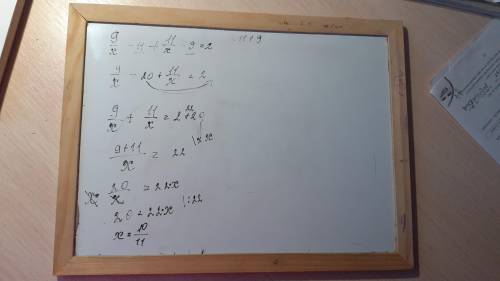 9/x - 9 + 11/x - 9 = 2
-11+9
9/x - 20 + 11/x = 2
9/x + 11/x = 2 + 20
22
(9+11)/x = 22 \·x
20 = 22·x
20 = 22·x \:22
x = 10/11